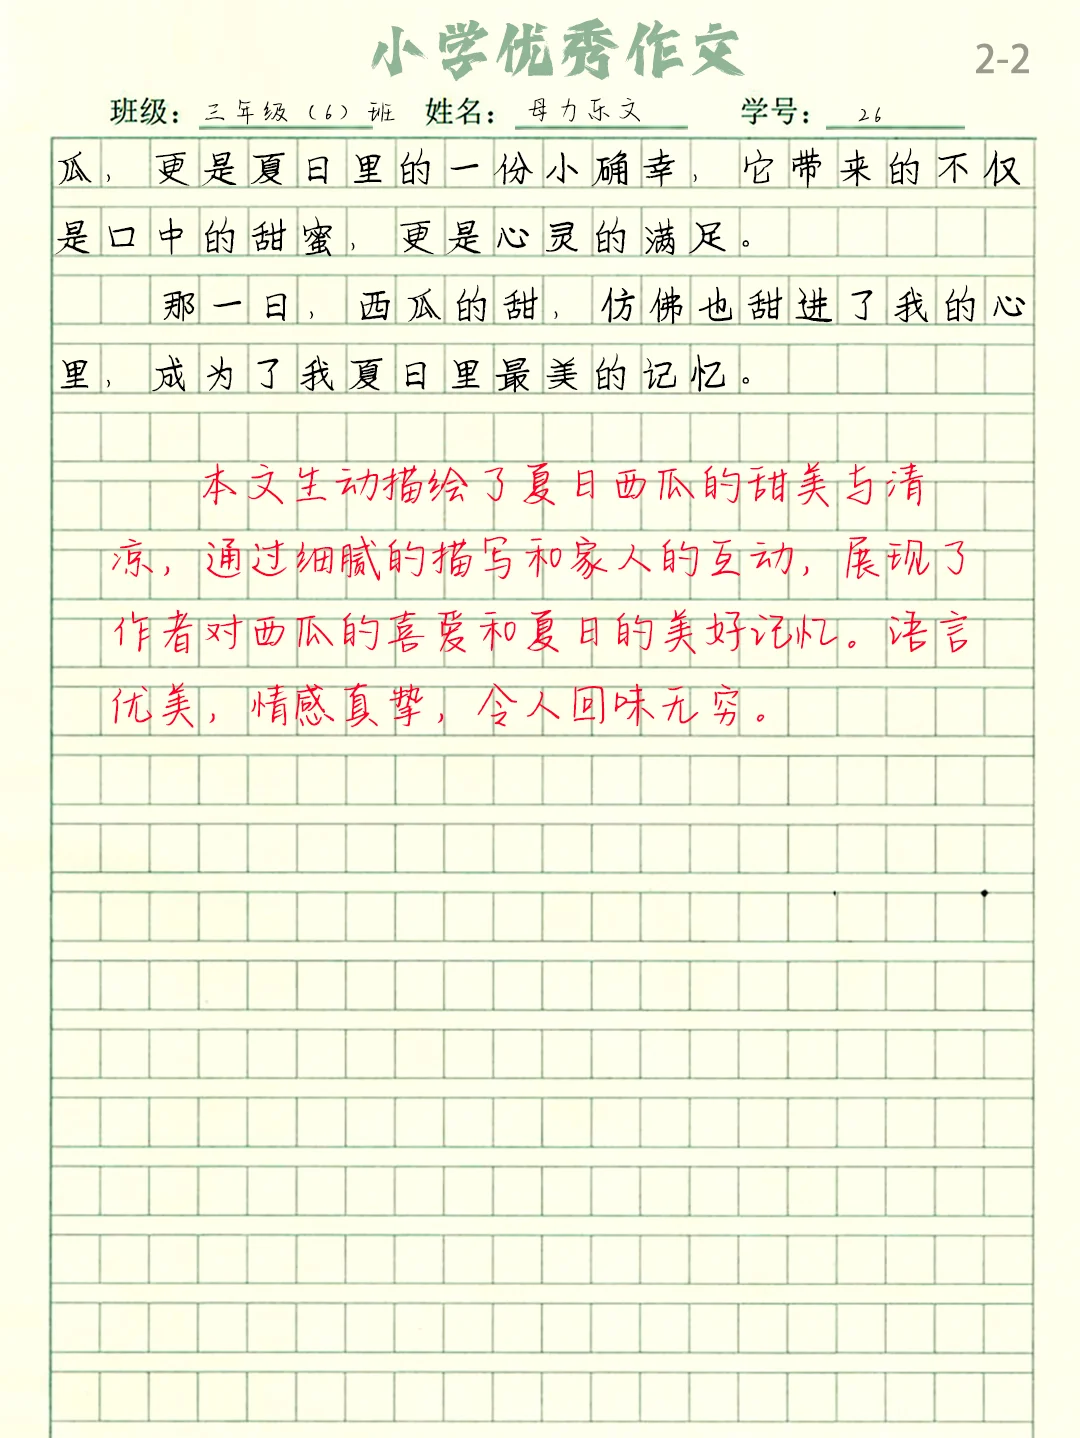 小学优秀作文
2-2
班级：三年级（6）班 姓名：母力乐文 学号：26
瓜，更是夏日里的一份小确幸，它带来的不仅
是口中的甜蜜，更是心灵的满足。
那一日，西瓜的甜，仿佛也甜进了我的心
里，成为了我夏日里最美的记忆。
本文生动描绘了夏日西瓜的甜美与清
凉，通过细腻的描写和家人的互动，展现了
作者对西瓜的喜爱和夏日的美好记忆。语言
优美，情感真挚，令人回味无穷。